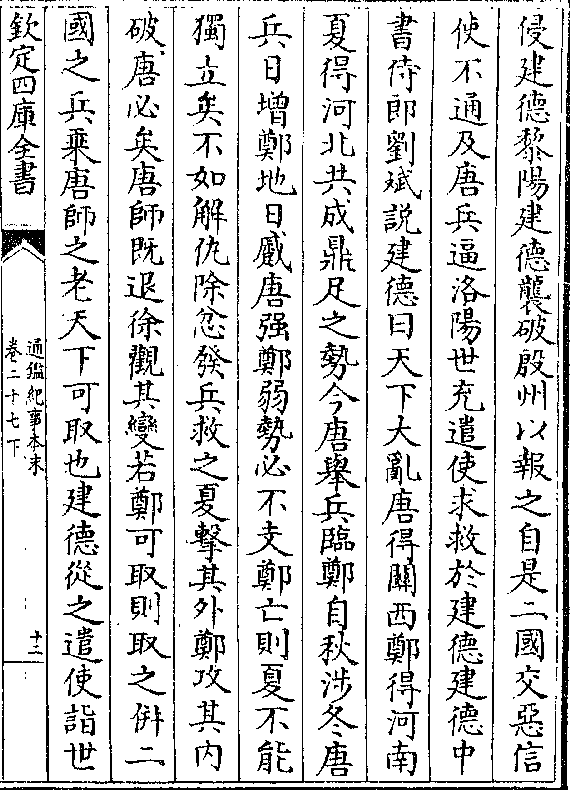 侵建德黎陽建德襲破殷州以報之自是二國交惡信
使不通及唐兵逼洛陽世充遣使求救於建德建德中
書侍郎劉斌説建德曰天下大亂唐得關西鄭得河南
夏得河北共成鼎足之勢今唐舉兵臨鄭自秋涉冬唐
兵日增鄭地日蹙唐强鄭弱勢必不支鄭亡則夏不能
獨立矣不如解仇除忿發兵救之夏擊其外鄭攻其内
破唐必矣唐師既退徐觀其變若鄭可取則取之併二
國之兵乗唐師之老天下可取也建德從之遣使詣世
欽定四庫全書
通鑑紀事本末
卷二十七下
十三